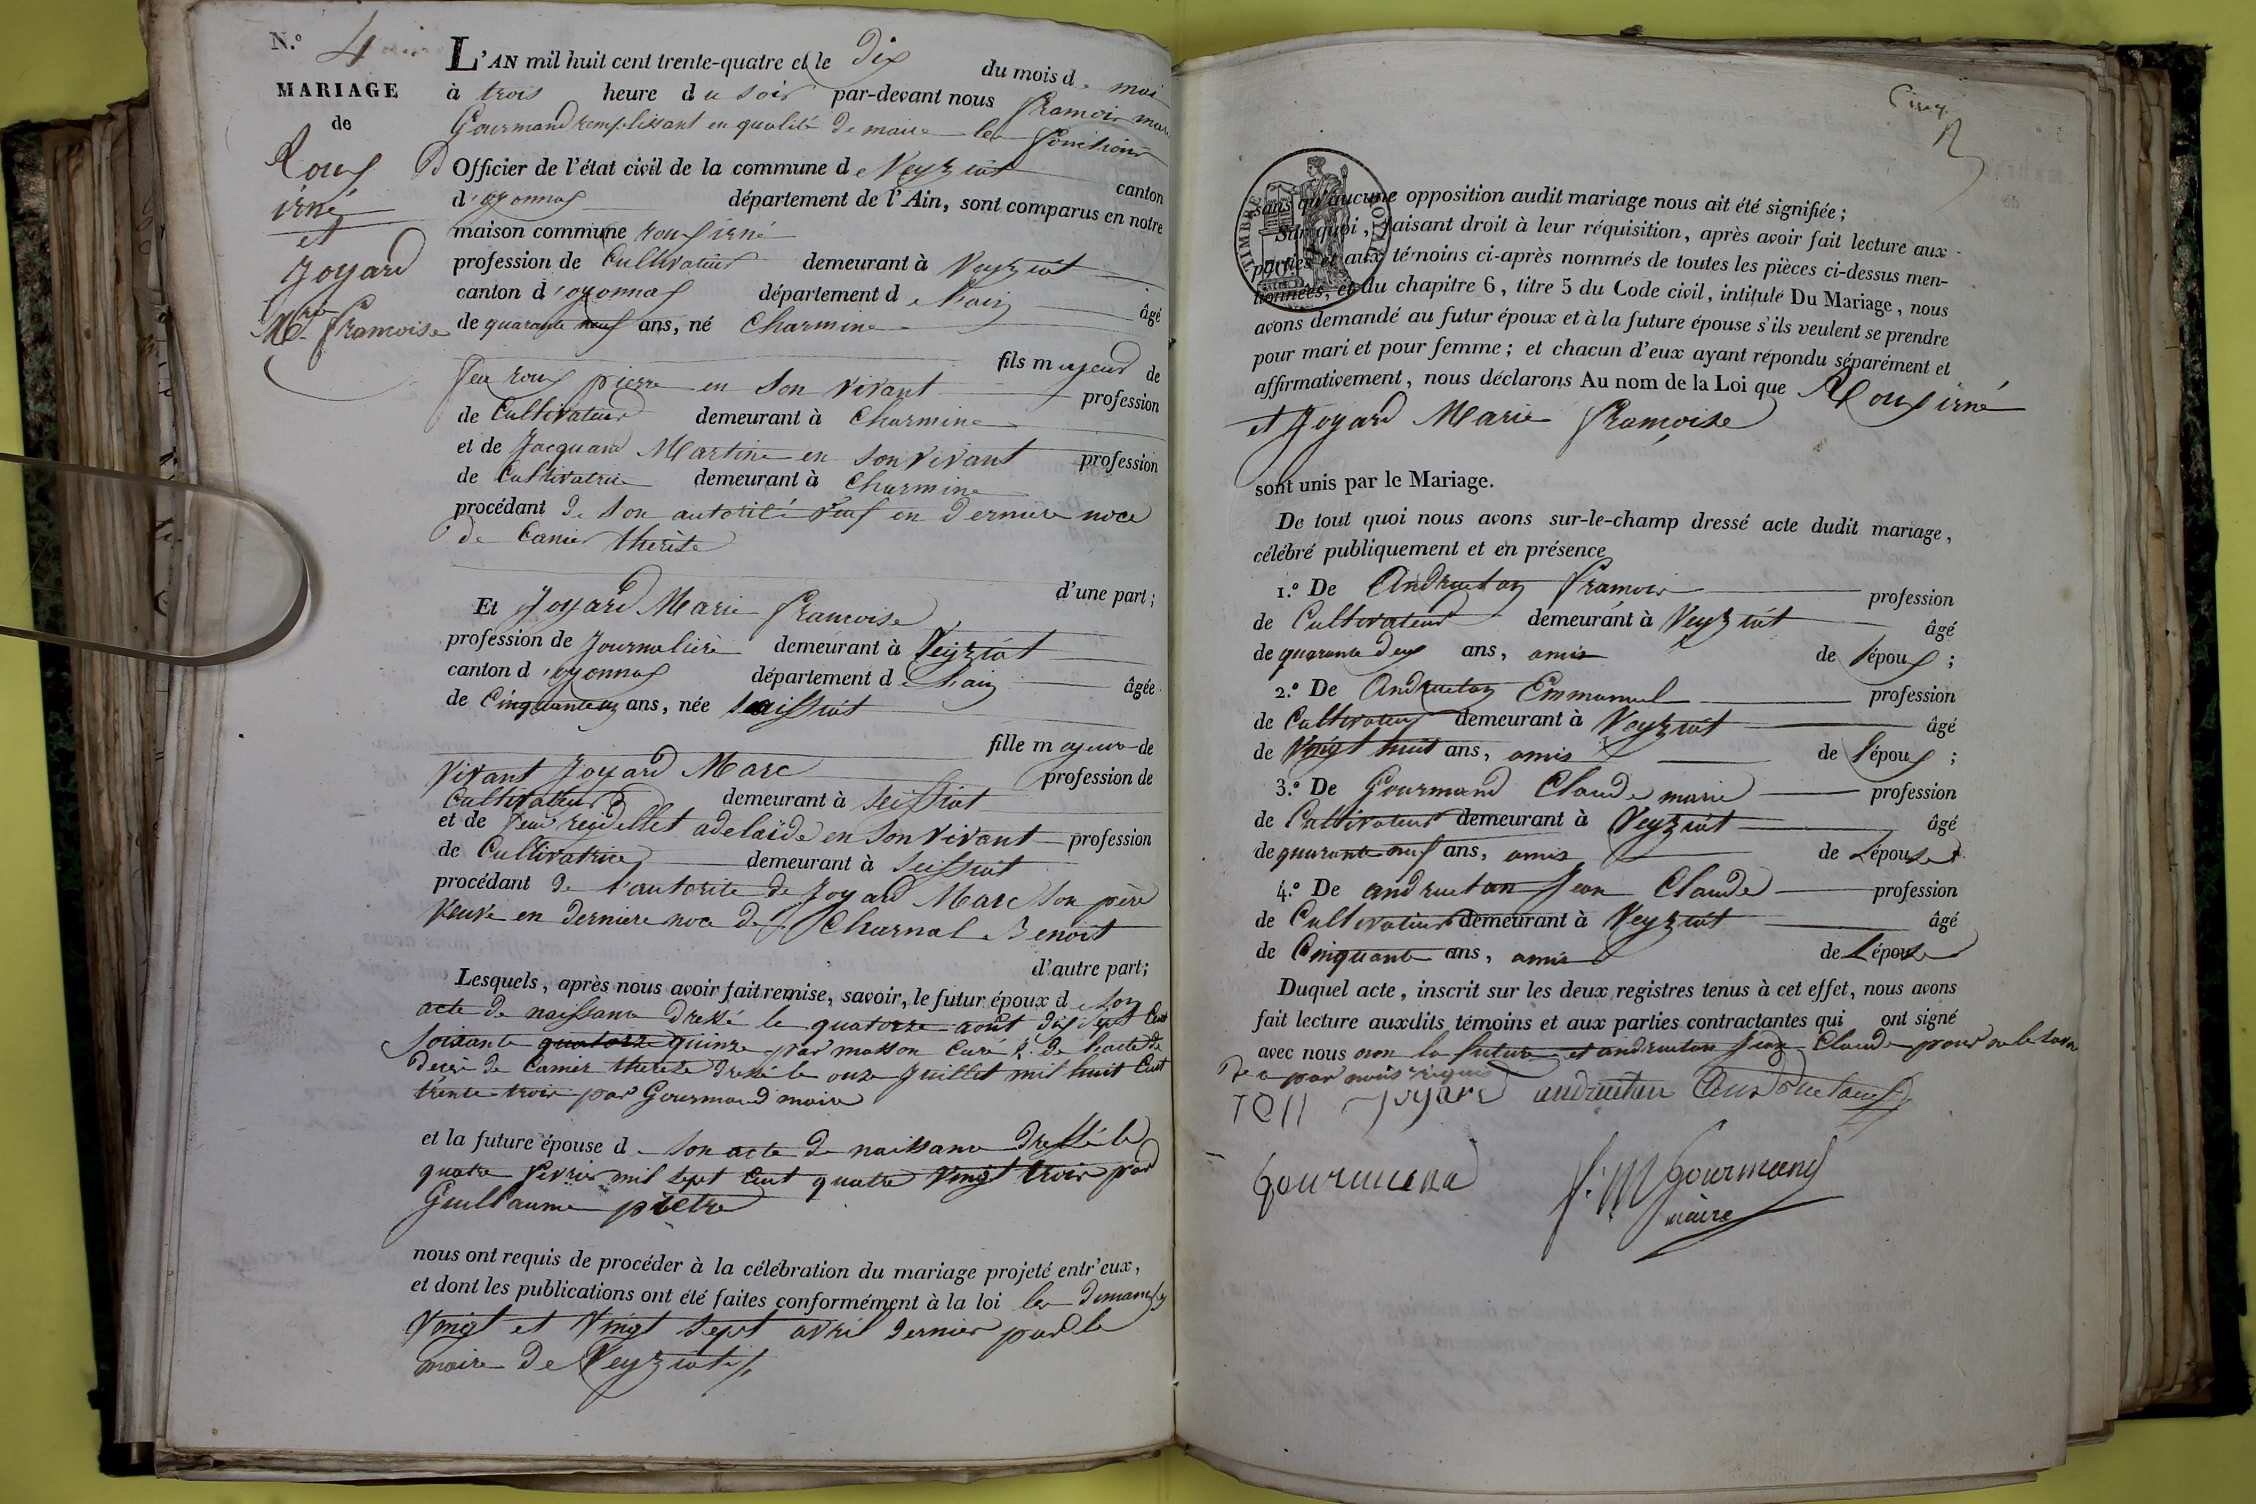 N.º 4
MARIAGE
de
Roux
irné
et
Joyard
M.re francoise
L'AN mil huit cent trente-quatre et le Dix du mois de mai
à trois heure du soir par-devant nous francois marie
Gourmand remplissant en qualité de maire les fonctions
D Officier de l'état civil de la commune de Veyziat canton
d'oyonnax département de l'Ain, sont comparus en notre
maison commune roux irné
profession de Cultivateur demeurant à Veyziat
canton d'oyonnax département de l'ain âgé
de quarante neuf ans, né Charmine
fils majeur de
feu roux pierre en son vivant profession
de Cultivateur demeurant à Charmine
et de Jacquand Martine en son vivant profession
de Cultivatrice demeurant à Charmine
procédant de son autorité veuf en derniere noce
de Canier therese
d'une part;
Et Joyard Marie francoise
profession de Journalière demeurant à Veyziat
canton d'oyonnax département de l'ain âgée
de Cinquante un ans, née seissiat
fille majeure de
vivant Joyard Marc profession de
Cultivateur demeurant à seissiat
et de feue reydellet adelaïde en son vivant profession
de Cultivatrice demeurant à seissiat
procédant de l'autorite de Joyard Marc son père
veuve en derniere noce de Charnal Benoit
d'autre part;
Lesquels, après nous avoir fait remise, savoir, le futur époux de son
acte de naissance dressé le quatorze août dix sept Cent
soixante quatorze quinze par masson Curé p. de l'acte de
deces de Canier therese dressé le onze Juillet mil huit Cent
trente trois par Gourmand maire
et la future épouse de son acte de naissance dressé le
quatre fevrier mil sept Cent quatre vingt trois par
Guillaume pretre
nous ont requis de procéder à la célébration du mariage projeté entr'eux,
et dont les publications ont été faites conformément à la loi les dimanches
Vingt et Vingt sept avril dernier par le
maire de Veyziat
Cinq
TIMBRE ROYAL
sans qu'aucune opposition audit mariage nous ait été signifiée;
Sur quoi, faisant droit à leur réquisition, après avoir fait lecture aux
parties et aux témoins ci-après nommés de toutes les pièces ci-dessus men-
tionnées, et du chapitre 6, titre 5 du Code civil, intitulé Du Mariage, nous
avons demandé au futur époux et à la future épouse s'ils veulent se prendre
pour mari et pour femme; et chacun d'eux ayant répondu séparément et
affirmativement, nous déclarons Au nom de la Loi que Roux irné
et Joyard Marie françoise
sont unis par le Mariage.
De tout quoi nous avons sur-le-champ dressé acte dudit mariage,
célébré publiquement et en présence
1.º De Andruetan francois profession
de Cultivateur demeurant à Veyziat âgé
de quarante deux ans, amis de l'époux;
2.º De Andruetan Emmanuel profession
de Cultivateur demeurant à Veyziat âgé
de Vingt huit ans, amis de l'époux;
3.º De Gourmand Claude marie profession
de Cultivateur demeurant à Veyziat âgé
de quarante neuf ans, amis de L'épouse
4.º De andruetan Jean Claude profession
de Cultivateur demeurant à Veyziat âgé
de Cinquante ans, amis de L'épouse
Duquel acte, inscrit sur les deux registres tenus à cet effet, nous avons
fait lecture auxdits témoins et aux parties contractantes qui ont signé
avec nous non la future et andruetan Jean Claude pour ne le savoir
de ce par nous requis
Joyard andruetan Andruetan
Gourmand f. M Gourmand
maire